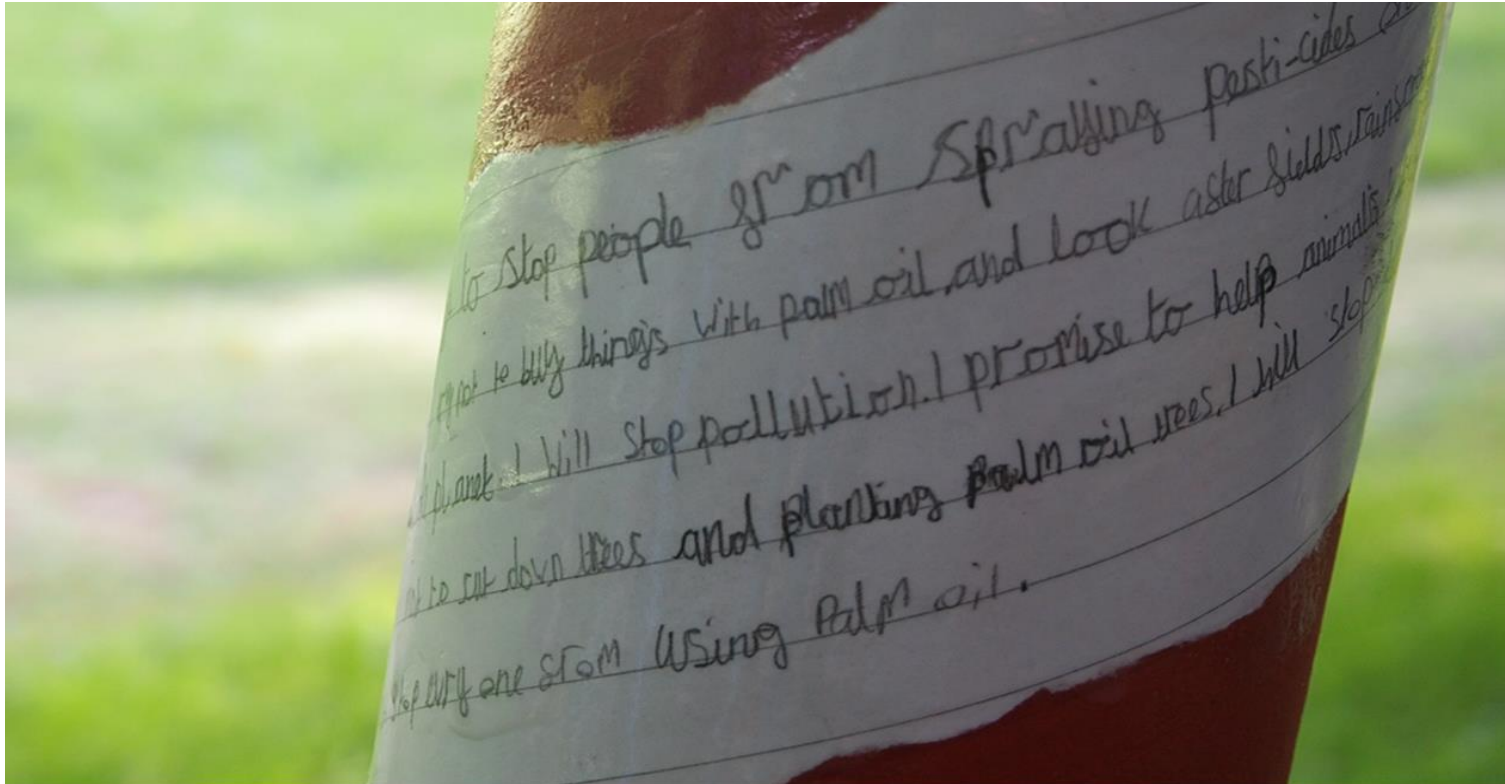 to stop people from spraying pesti-cides
not to buy things with palm oil, and look after fields,
planet. I will stop pollution. I promise to help animals
to cut down trees and planting palm oil trees. I will stop
stop evryone from using palm oil.